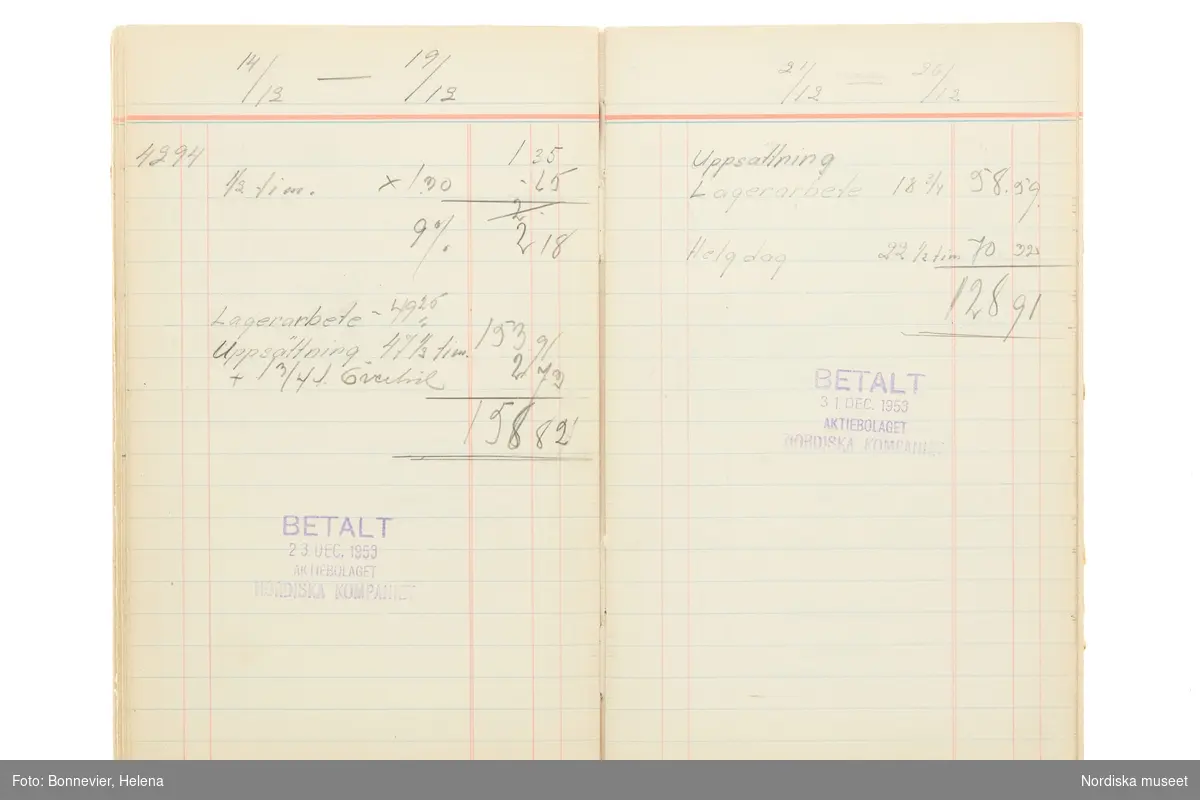 14/12 — 19/12
4294 1 35
1/2 tim. × 130 - 65
2.
9% 2 18
Lagerarbete - 49 25
Uppsättning 47 1/2 tim. 153 91
+ 1 3/4 t. Övertid 2 73
158 82
BETALT
23 DEC. 1953
AKTIEBOLAGET
NORDISKA KOMPANIET
21/12 — 26/12
Uppsättning
Lagerarbete 18 3/4 58.59
Helgdag 22 1/2 tim. 70 32
128 91
BETALT
31 DEC. 1953
AKTIEBOLAGET
NORDISKA KOMPANIET
Foto: Bonnevier, Helena
Nordiska museet